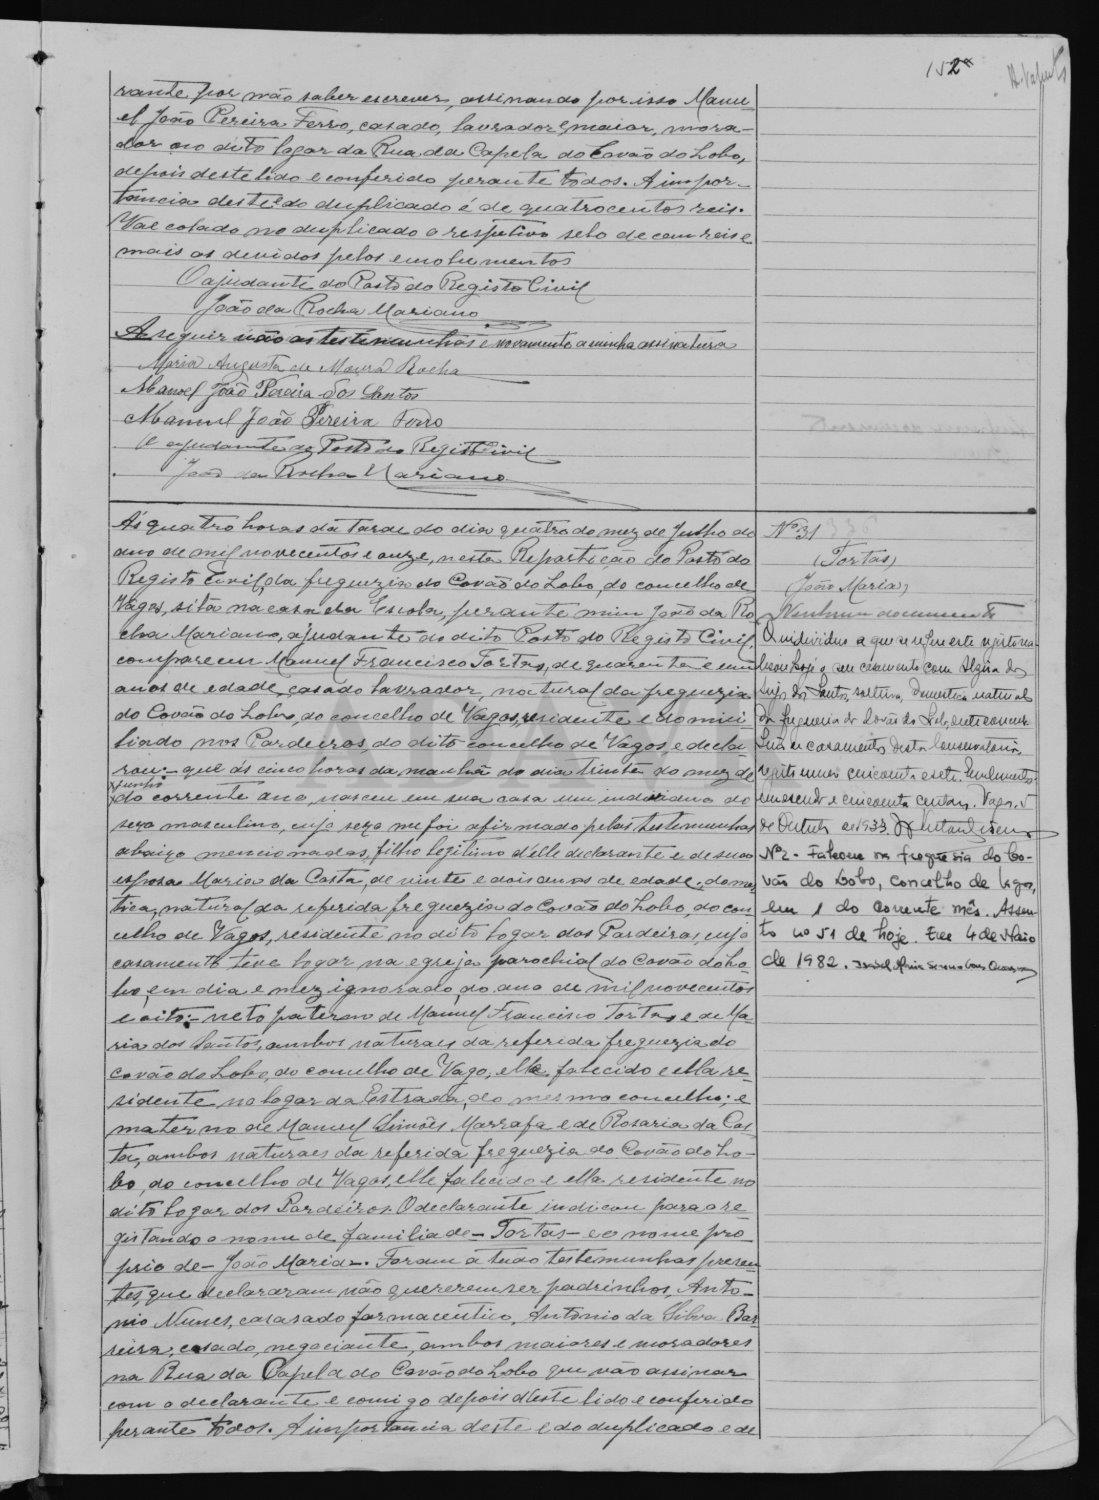 152
rante por não saber escrever, assinando por isso Manu-
el João Pereira Ferro, casado, lavrador, maior, mora-
dor no dito logar da Rua da Capela do Covão do Lobo,
depois deste lido e conferido perante todos. A impor-
tancia deste e do duplicado é de quatrocentos reis.
Vae colado no duplicado o respetivo selo de cem reis e
mais os devidos pelos emolumentos
O ajudante do Posto do Registo Civil
João da Rocha Mariano
A seguir vão as testemunhas e novamento a minha assinatura
Maria Augusta de Moura Rocha
Manoel João Pereira dos Santos
Manuel João Pereira Ferro
O ajudante do Posto do Registo Civil
João da Rocha Mariano
Ás quatro horas da tarde do dia quatro do mez de Julho do
ano de mil novecentos e onze, nesta Repartição do Posto do
Registo Civil, da freguezia do Covão do Lobo, do concelho de
Vagos, sita na casa da Escola, perante mim João da Ro
cha Mariano, ajudante do dito Posto do Registo Civil,
compareceu Manuel Francisco Tortas, de quarenta e um
anos de edade, casado lavrador, natural da freguezia
do Covão do Lobo, do concelho de Vagos, residente e domici-
liado nos Pardeiros, do dito concelho de Vagos, e decla
rou:- que ás cinco horas da manhã do dia trinta do mez de
junho
do corrente ano, nasceu em sua casa um individuo do
sexo masculino, cujo sexo me foi afirmado pelas testemunhas
abaixo mencionadas, filho legitimo d'elle declarante e de sua
esposa Maria da Costa, de vinte e dois anos de edade, domes
tica, natural da referida freguezia do Covão do Lobo, do con-
celho de Vagos, residente no dito logar dos Pardeiros, cujo
casamento teve logar na egreja parochial do Covão do Lo-
bo, em dia e mez ignorado, do ano de mil novecentos
e oito:- neto paterno de Manuel Francisco Tortas e de Ma-
ria dos Santos, ambos naturaes da referida freguezia do
Covão do Lobo, do concelho de Vagos, elle falecido e ella re-
sidente no logar da Estrada, do mesmo concelho; e
materno de Manuel Simões Marrafa e de Rosaria da Cos-
ta, ambos naturaes da referida freguezia do Covão do Lo-
bo, do concelho de Vagos, elle falecido e ella residente no
dito logar dos Pardeiros. O declarante indicou para o re
gistando o nome de familia de - Tortas - e o nome pro-
prio de - João Maria -. Foram a tudo testemunhas presen-
tes, que declararam não quererem ser padrinhos, Anto-
nio Nunes, casado farmaceutico, Antonio da Silva Bar
reira, casado, negociante, ambos maiores e moradores
na Rua da Capela do Covão do Lobo que vão assinar
com o declarante e comigo depois d'este lido e conferido
perante todos. A importancia deste e do duplicado é de
Nº 31
(Tortas)
(João Maria)
Nenhum documento
O individuo a que se refere este registo ce-
lebrou hoje o seu casamento com
dos Santos, solteira, domestica natural
da freguesia do Covão do Lobo,
casamento desta Conservatoria,
registo numero cincoenta e sete. Emolumentos
e cincoenta centavos. Vagos, 5
de Outubro de 1933.
Nº2 - Faleceu na freguesia do Co-
vão do Lobo, concelho de Vagos,
em 1 do corrente mês. Assen-
to nº 51 de hoje. Em 4 de Maio
de 1982.